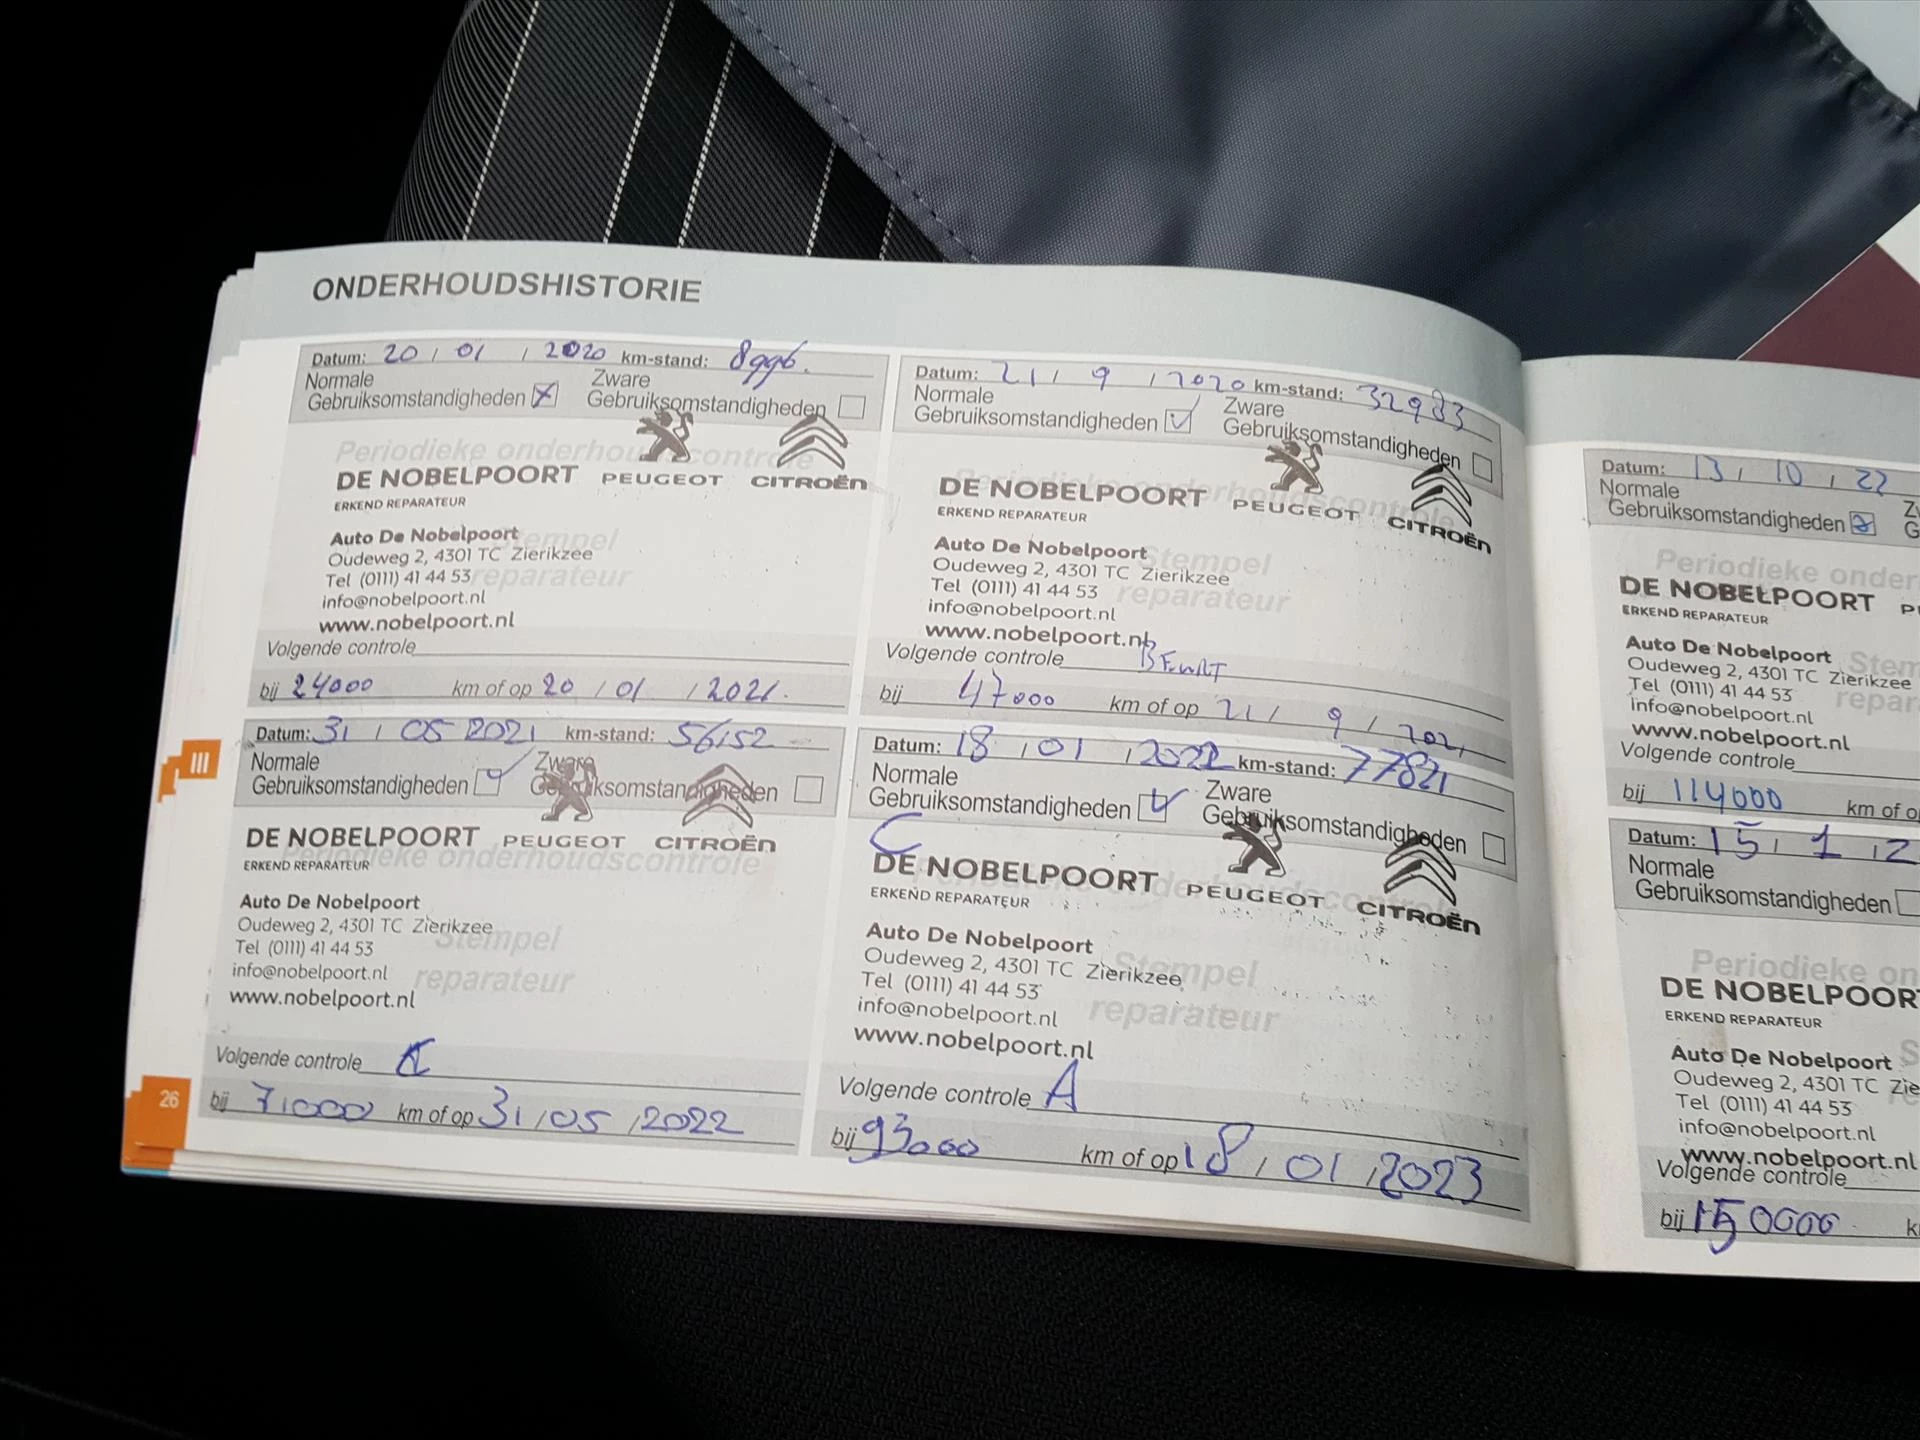 ONDERHOUDSHISTORIE
Datum: 20 / 01 / 2020 km-stand: 8996.
Normale
Gebruiksomstandigheden
Zware
Gebruiksomstandigheden
Periodieke onderhoudscontrole
DE NOBELPOORT PEUGEOT CITROËN
ERKEND REPARATEUR
Stempel
reparateur
Auto De Nobelpoort
Oudeweg 2, 4301 TC Zierikzee
Tel (0111) 41 44 53
info@nobelpoort.nl
www.nobelpoort.nl
Volgende controle
bij 24000 km of op 20 / 01 / 2021.
Datum: 21 / 9 / 2020 km-stand: 32983
Normale
Gebruiksomstandigheden
Zware
Gebruiksomstandigheden
Periodieke onderhoudscontrole
DE NOBELPOORT PEUGEOT CITROËN
ERKEND REPARATEUR
Stempel
reparateur
Auto De Nobelpoort
Oudeweg 2, 4301 TC Zierikzee
Tel (0111) 41 44 53
info@nobelpoort.nl
www.nobelpoort.nl
Volgende controle
bij 47000 km of op 21 / 9 / 2021
Datum: 31 / 05 2021 km-stand: 56152
Normale
Gebruiksomstandigheden
Zware
Gebruiksomstandigheden
DE NOBELPOORT PEUGEOT CITROËN
ERKEND REPARATEUR
Periodieke onderhoudscontrole
Auto De Nobelpoort
Oudeweg 2, 4301 TC Zierikzee
Tel (0111) 41 44 53
info@nobelpoort.nl
www.nobelpoort.nl
Stempel
reparateur
Volgende controle C
bij 71000 km of op 31 / 05 / 2022
Datum: 18 / 01 / 2022 km-stand: 77821
Normale
Gebruiksomstandigheden
Zware
Gebruiksomstandigheden
C
DE NOBELPOORT PEUGEOT CITROËN
ERKEND REPARATEUR
Periodieke onderhoudscontrole
Auto De Nobelpoort
Oudeweg 2, 4301 TC Zierikzee
Tel (0111) 41 44 53
info@nobelpoort.nl
www.nobelpoort.nl
Stempel
reparateur
Volgende controle A
bij 93000 km of op 18 / 01 / 2023
III
26
Datum: 13 / 10 / 22
Normale
Gebruiksomstandigheden
Periodieke onder
DE NOBELPOORT
ERKEND REPARATEUR
Auto De Nobelpoort
Oudeweg 2, 4301 TC Zierikzee
Tel (0111) 41 44 53
info@nobelpoort.nl
www.nobelpoort.nl
Stem
repara
Volgende controle
bij 114000 km of o
Datum: 15 / 1 / 2
Normale
Gebruiksomstandigheden
Periodieke on
DE NOBELPOOR
ERKEND REPARATEUR
Auto De Nobelpoort
Oudeweg 2, 4301 TC Zie
Tel (0111) 41 44 53
info@nobelpoort.nl
www.nobelpoort.nl
Volgende controle
bij 150000